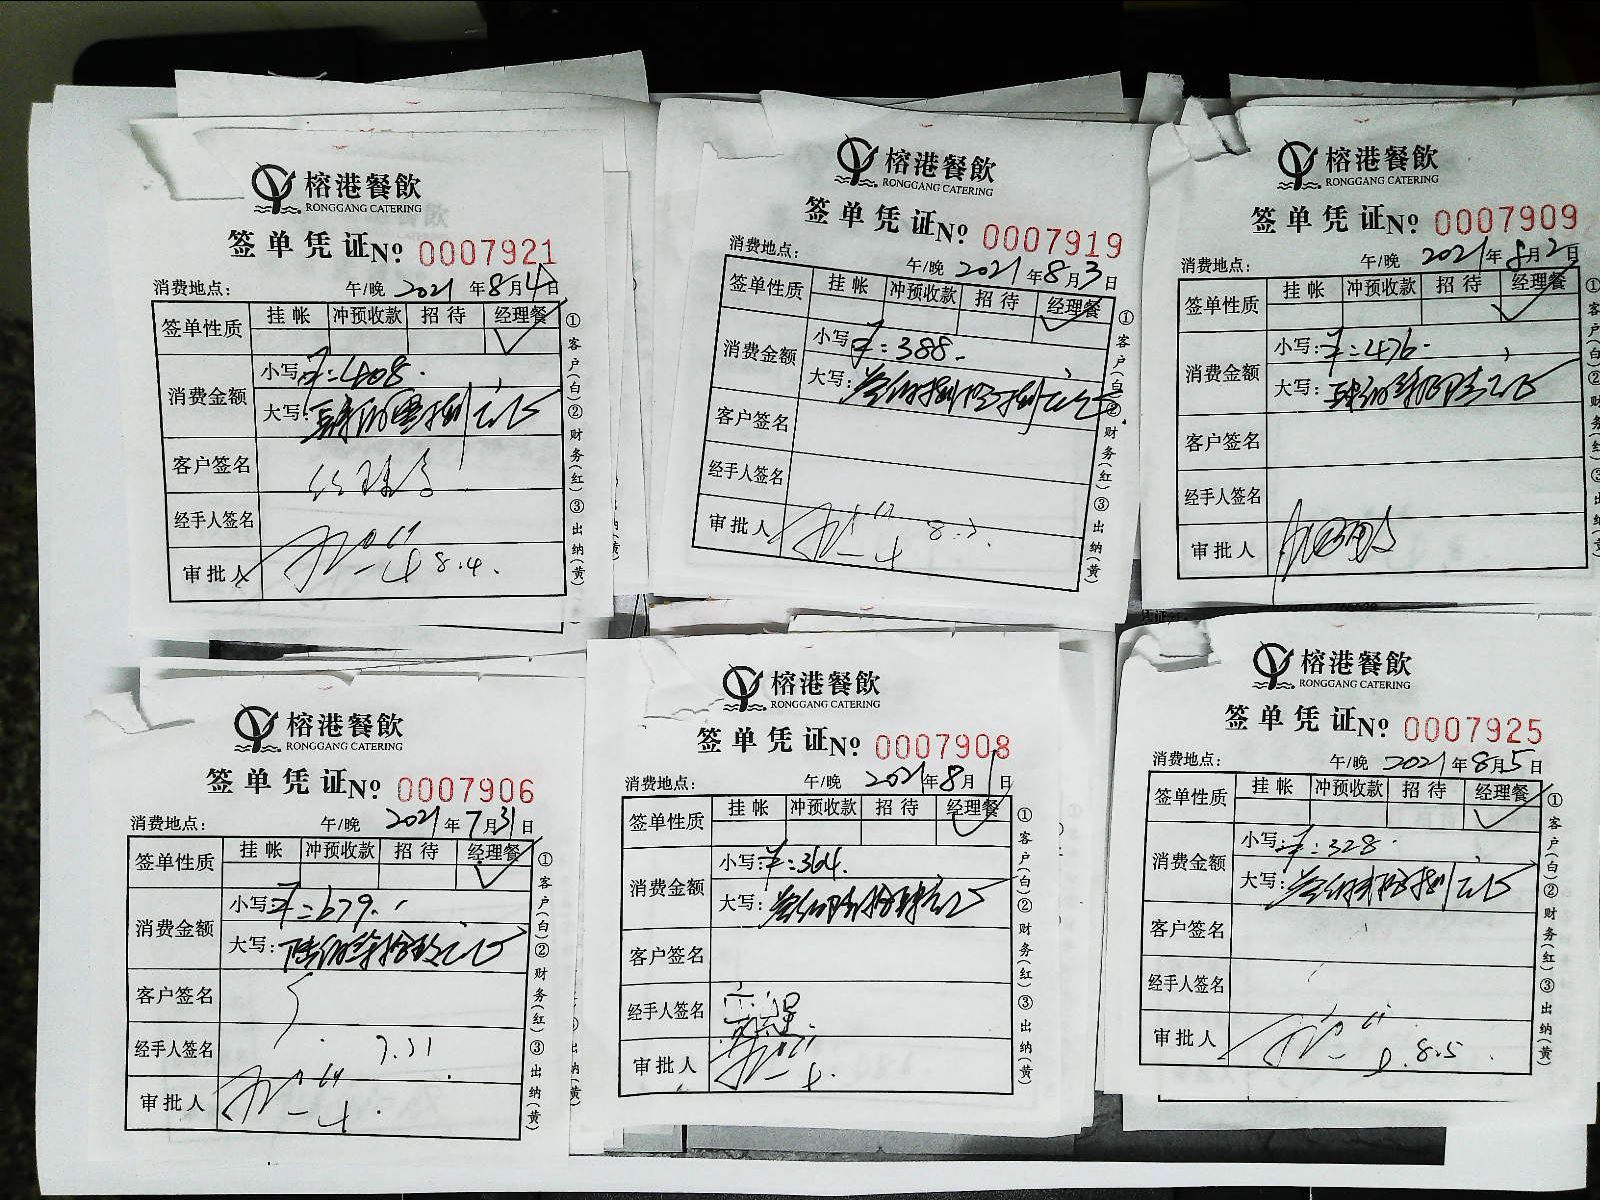 榕港餐飲
RONGGANG CATERING
签单凭证 No 0007921
消费地点： 午/晚 2021年8月4日
签单性质 挂帐 冲预收款 招待 经理餐
消费金额
小写：¥:408.
大写：肆佰零拾捌元正
客户签名
经手人签名
审批人 8.4.
①客户(白)②财务(红)③出纳(黄)
榕港餐飲
RONGGANG CATERING
签单凭证 No 0007919
消费地点： 午/晚 2021年8月3日
签单性质 挂帐 冲预收款 招待 经理餐
消费金额
小写：¥:388.
大写：叁佰捌拾捌元正
客户签名
经手人签名
审批人 8.3.
①客户(白)②财务(红)③出纳(黄)
榕港餐飲
RONGGANG CATERING
签单凭证 No 0007909
消费地点： 午/晚 2021年8月2日
签单性质 挂帐 冲预收款 招待 经理餐
消费金额
小写：¥:476.
大写：肆佰柒拾陆元正
客户签名
经手人签名
审批人
榕港餐飲
RONGGANG CATERING
签单凭证 No 0007906
消费地点： 午/晚 2021年7月31日
签单性质 挂帐 冲预收款 招待 经理餐
消费金额
小写：¥:679.
大写：陆佰柒拾玖元正
客户签名
经手人签名 7.31
审批人
①客户(白)②财务(红)③出纳(黄)
榕港餐飲
RONGGANG CATERING
签单凭证 No 0007908
消费地点： 午/晚 2021年8月1日
签单性质 挂帐 冲预收款 招待 经理餐
消费金额
小写：¥:364.
大写：叁佰陆拾肆元正
客户签名
经手人签名
审批人
①客户(白)②财务(红)③出纳(黄)
榕港餐飲
RONGGANG CATERING
签单凭证 No 0007925
消费地点： 午/晚 2021年8月5日
签单性质 挂帐 冲预收款 招待 经理餐
消费金额
小写：¥:328.
大写：叁佰贰拾捌元正
客户签名
经手人签名
审批人 8.5
①客户(白)②财务(红)③出纳(黄)